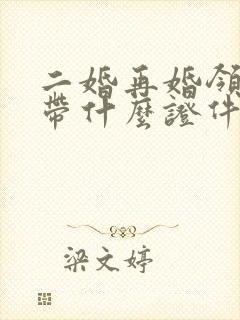 二婚再婚領
帶什麼證件
梁文婷